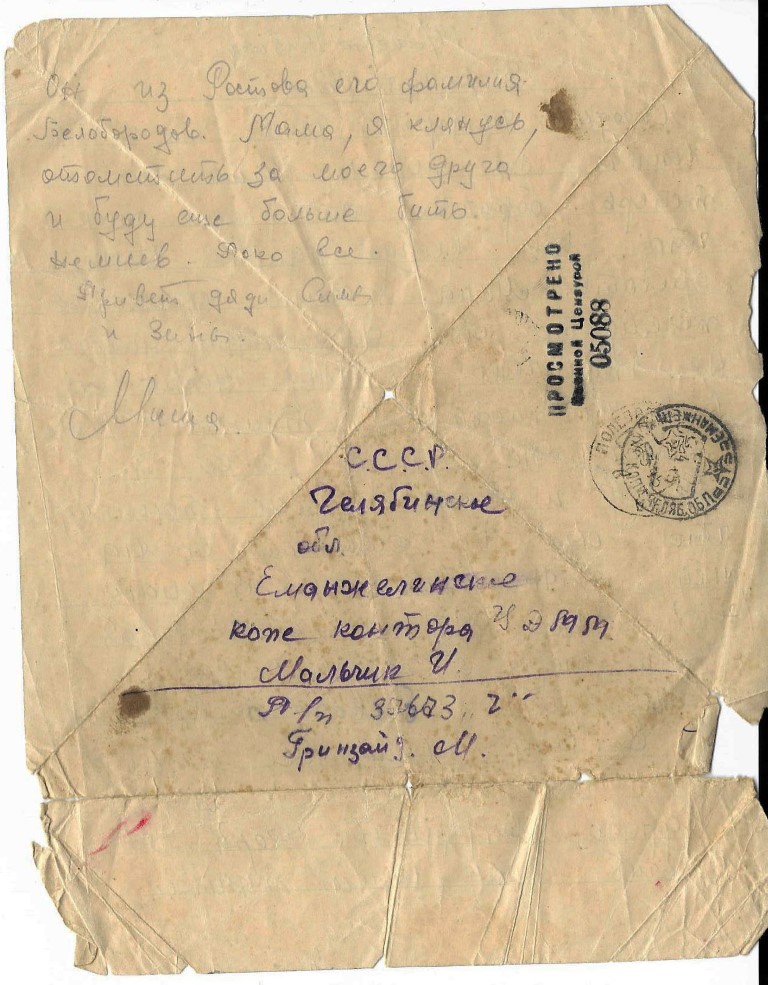 Он из Ростова его фамилия
Белобородов. Мама, я клянусь,
отомстить за моего друга
и буду еще больше бить
немцев. Пока все.
Привет дяди Симы
и Зины.
Миша.
ПРОСМОТРЕНО
Военной Цензурой
05088
С.С.С.Р.
Челябинское
обл.
Еманжелинские
копе контора
Мальчик И.
П/п 33673 "г"
Гринзайд. М.